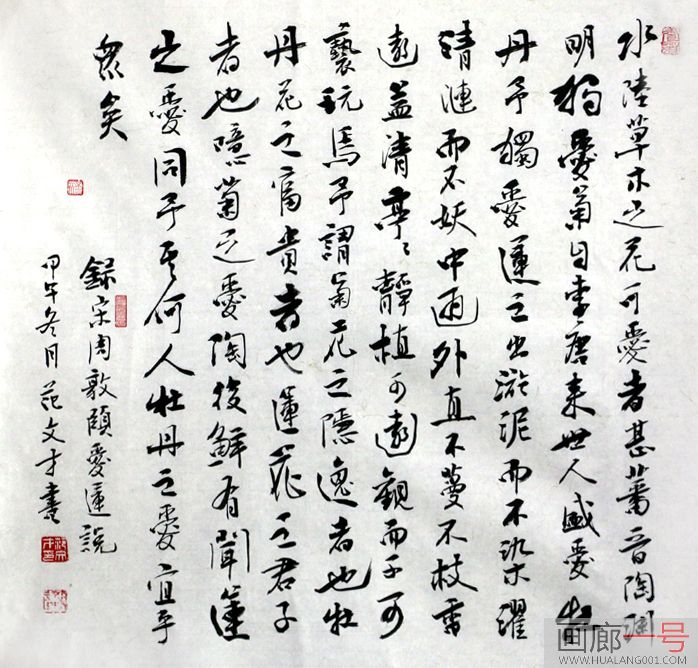 水陸草木之花可愛者甚蕃晉陶淵
明獨愛菊自李唐來世人盛愛牡
丹予獨愛蓮之出淤泥而不染濯
清漣而不妖中通外直不蔓不枝香
遠益清亭〻靜植可遠觀而不可
褻玩焉予謂菊花之隱逸者也牡
丹花之富貴者也蓮花之君子
者也噫菊之愛陶後鮮有聞蓮
之愛同予者何人牡丹之愛宜乎
眾矣
錄宋周敦頤愛蓮說
甲午冬月范文才書
画廊一号
WWW.HUALANG001.COM